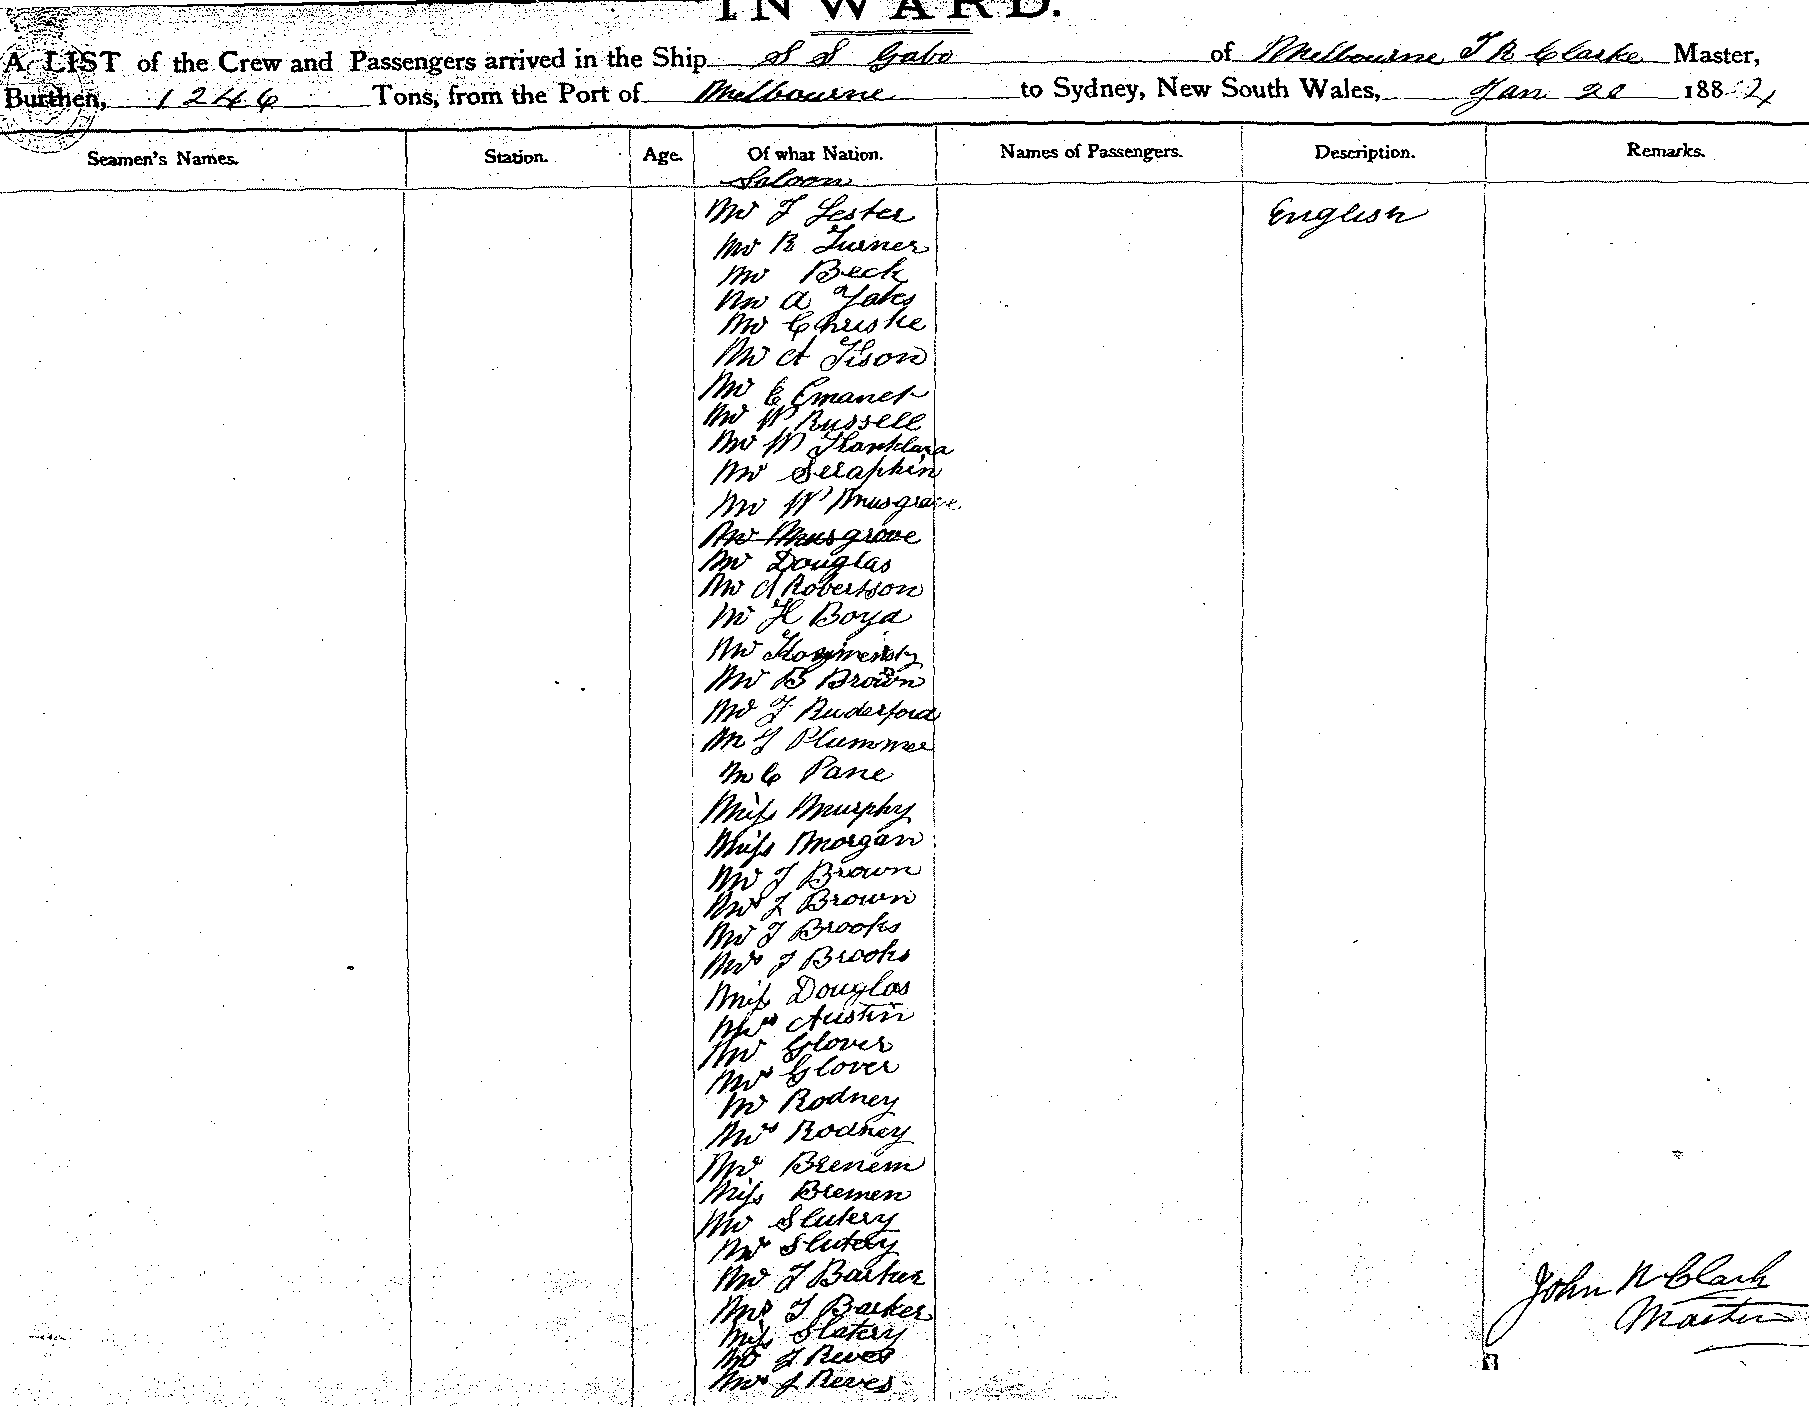 INWARD.
A LIST of the Crew and Passengers arrived in the Ship S S Gabo of Melbourne J R Clarke Master,
Burthen, 1246 Tons, from the Port of Melbourne to Sydney, New South Wales, Jan 20 188
Seamen's Names. Station. Age. Of what Nation. Names of Passengers. Description. Remarks.
Saloon
Mr J Lester English
Mr R Turner
Mr Beck
Mr A Yates
Mr Christie
Mr A Tison
Mr C Emanet
Mr W Russell
Mr W
Mr Seraphin
Mr W Musgrave
Mr Musgrove
Mr Douglas
Mr A Robertson
Mr H Boyd
Mr
Mr B Brown
Mr J Ruderford
Mr J Plummer
Mr C Pane
Miss Murphy
Miss Morgan
Mr J Brown
Mrs J Brown
Mr J Brooks
Mrs J Brooks
Miss Douglas
Mrs Austin
Mr Glover
Mrs Glover
Mr Rodney
Mrs Rodney
Mr Brenem
Miss Bremen
Mr Slutery
Mrs Slutery
Mr J Barker
Mrs J Barker
Miss Slatery
Mr J Reves
Mrs J Reves
John R Clark
Master